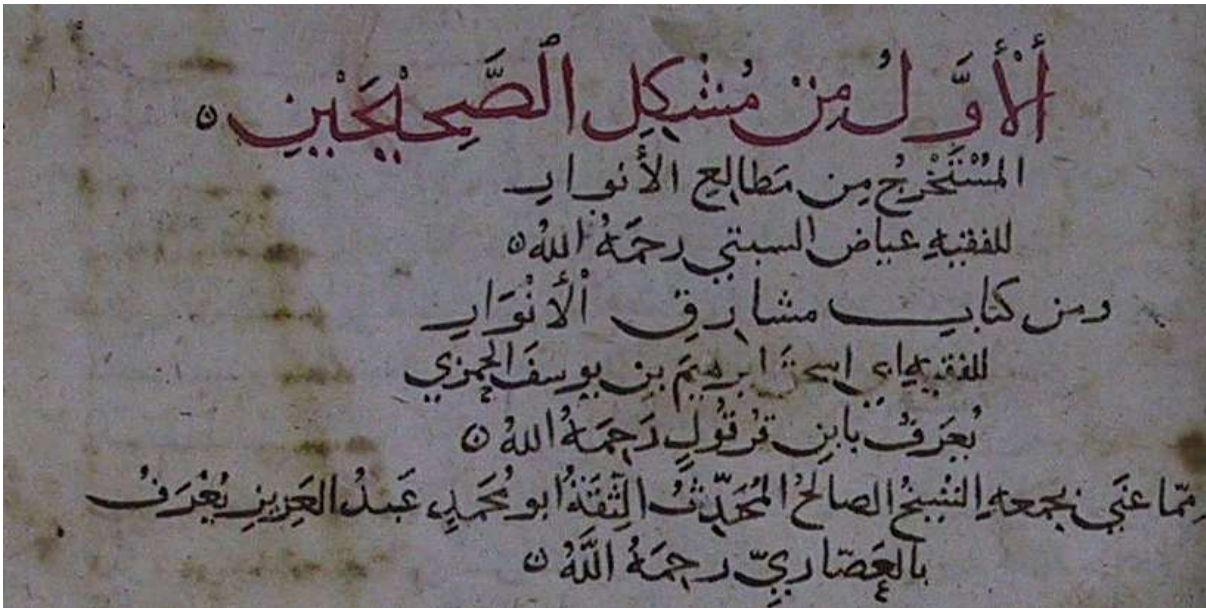 ألأَوَّلُ مِنْ مُشْكِلِ ٱلصَّحِيْحَيْنِ ۝
المُسْتَخْرَجُ مِن مَطَالِعِ الأَنوارِ
للفقيهِ عياض السبتي رحمَهُ اللهُ ۝
ومن كتابِ مشارقِ الأنْوَارِ
للفقيهِ ابي اسحقَ ابرهيمَ بنِ يوسفَ الحمزي
يُعرَفُ بابنِ قرقُولٍ رَحِمَهُ اللهُ ۝
مِمّا عُنِيَ بجمعهِ الشيخُ الصالحُ المُحَدِّثُ الثِقَةُ ابو مُحَمدٍ عَبدُ العَزِيزِ يُعْرَفُ
بالعَصّارِيِّ رحِمَهُ اللَّهُ ۝